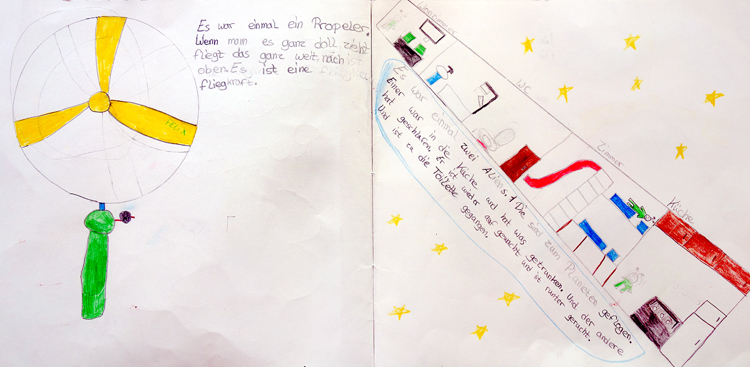 Es war einmal ein Propeler.
Wenn man es ganz doll zieht
fliegt das ganz weit nach
oben. Es ist eine
fliegkraft.
FELIX
Wonzimmer
WC
Zimmer
Küche
Es war einmal zwei Aliens. Die sind zum Planeten geflogen.
Einer war in die Küche und hat was getrunken. Und der andere
hat geschlafen. Er ist wieder auf gewacht und ist runter gerutscht.
Und ist zu die Toilette gegangen.